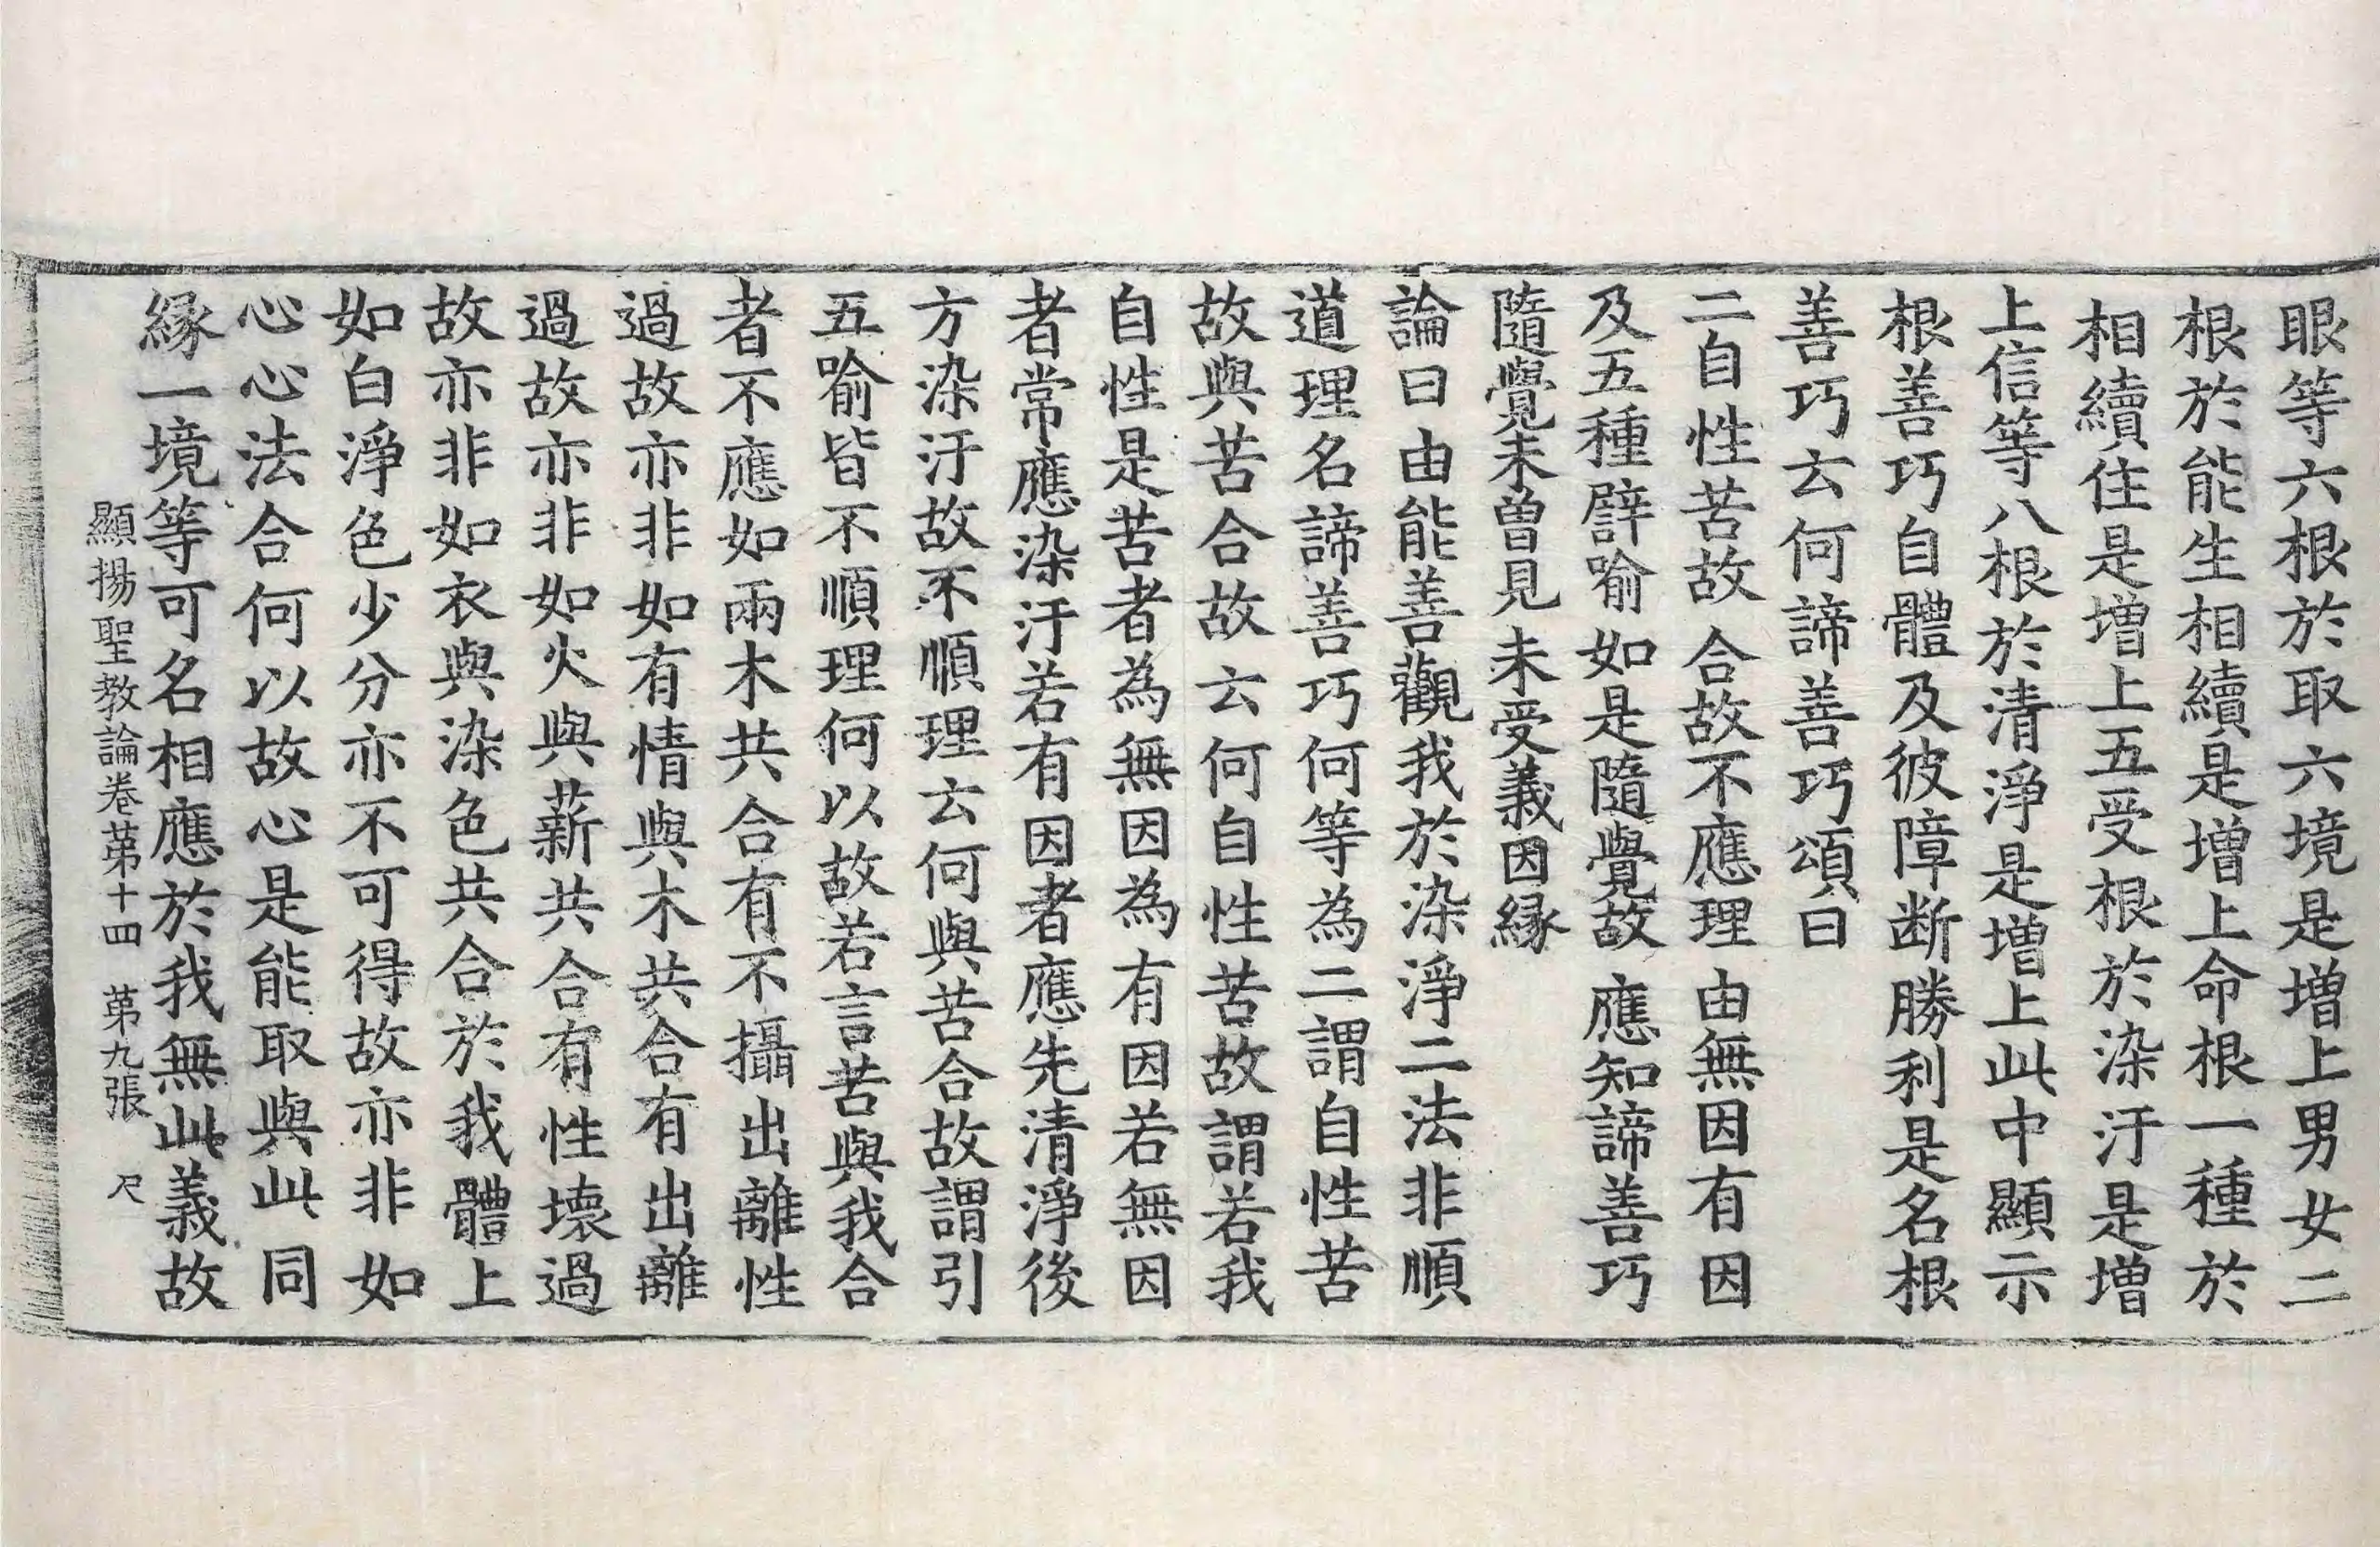 眼等六根於取六境是増上男女二
根於能生相續是増上命根一種於
相續住是増上五受根於染汙是増
上信等八根於清淨是増上此中顯示
根善巧自體及彼障断勝利是名根
善巧云何諦善巧頌曰
二自性苦故 合故不應理 由無因有因
及五種譬喻 如是隨覺故 應知諦善巧
隨覺未曽見 未受義因縁
論曰由能善觀我於染淨二法非順
道理名諦善巧何等為二謂自性苦
故與苦合故云何自性苦故謂若我
自性是苦者為無因為有因若無因
者常應染汙若有因者應先清淨後
方染汙故不順理云何與苦合故謂引
五喻皆不順理何以故若言苦與我合
者不應如兩木共合有不攝出離性
過故亦非如有情與木共合有出離
過故亦非如火與薪共合有性壞過
故亦非如衣與染色共合於我體上
如白淨色少分亦不可得故亦非如
心心法合何以故心是能取與此同
縁一境等可名相應於我無此義故
顯揚聖教論卷第十四 第九張 尺